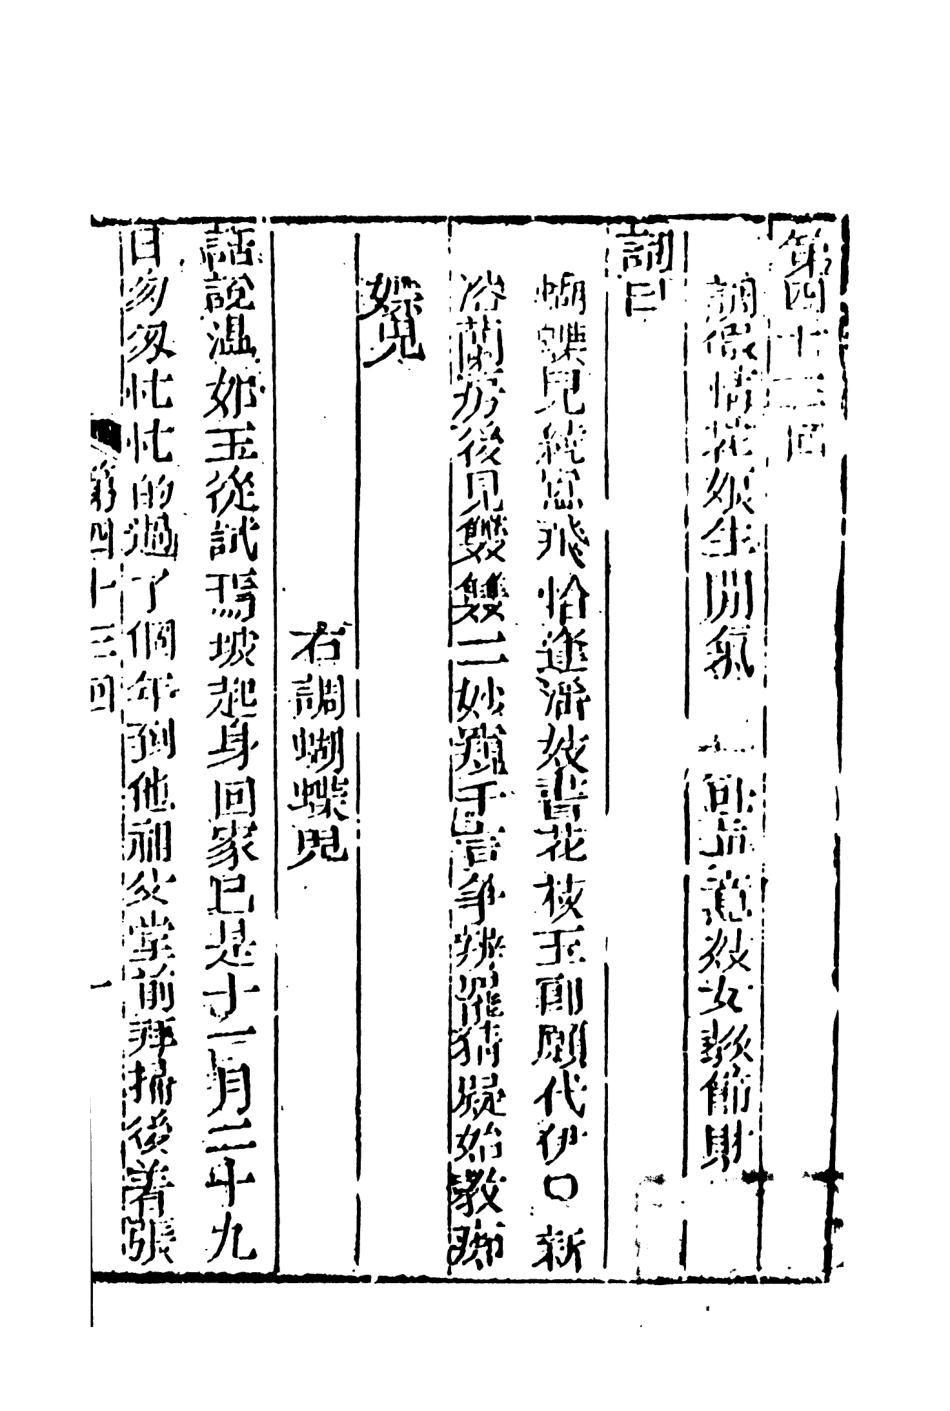 第四十三回
調假情花娘生閒氣 意妓女教節財
詞曰
蝴蝶兒繞窓飛恰逢潘妓書花枝玉郎願代伊口新
浴蘭房後見雙雙二妙千言爭辨罷猜疑始教
嫽兒
右調蝴蝶兒
話說溫如玉從試馬坡起身回家已是十一月二十九
日匆匆忙忙的過了個年到他祖父堂前拜掃後着張
第四十三回
一